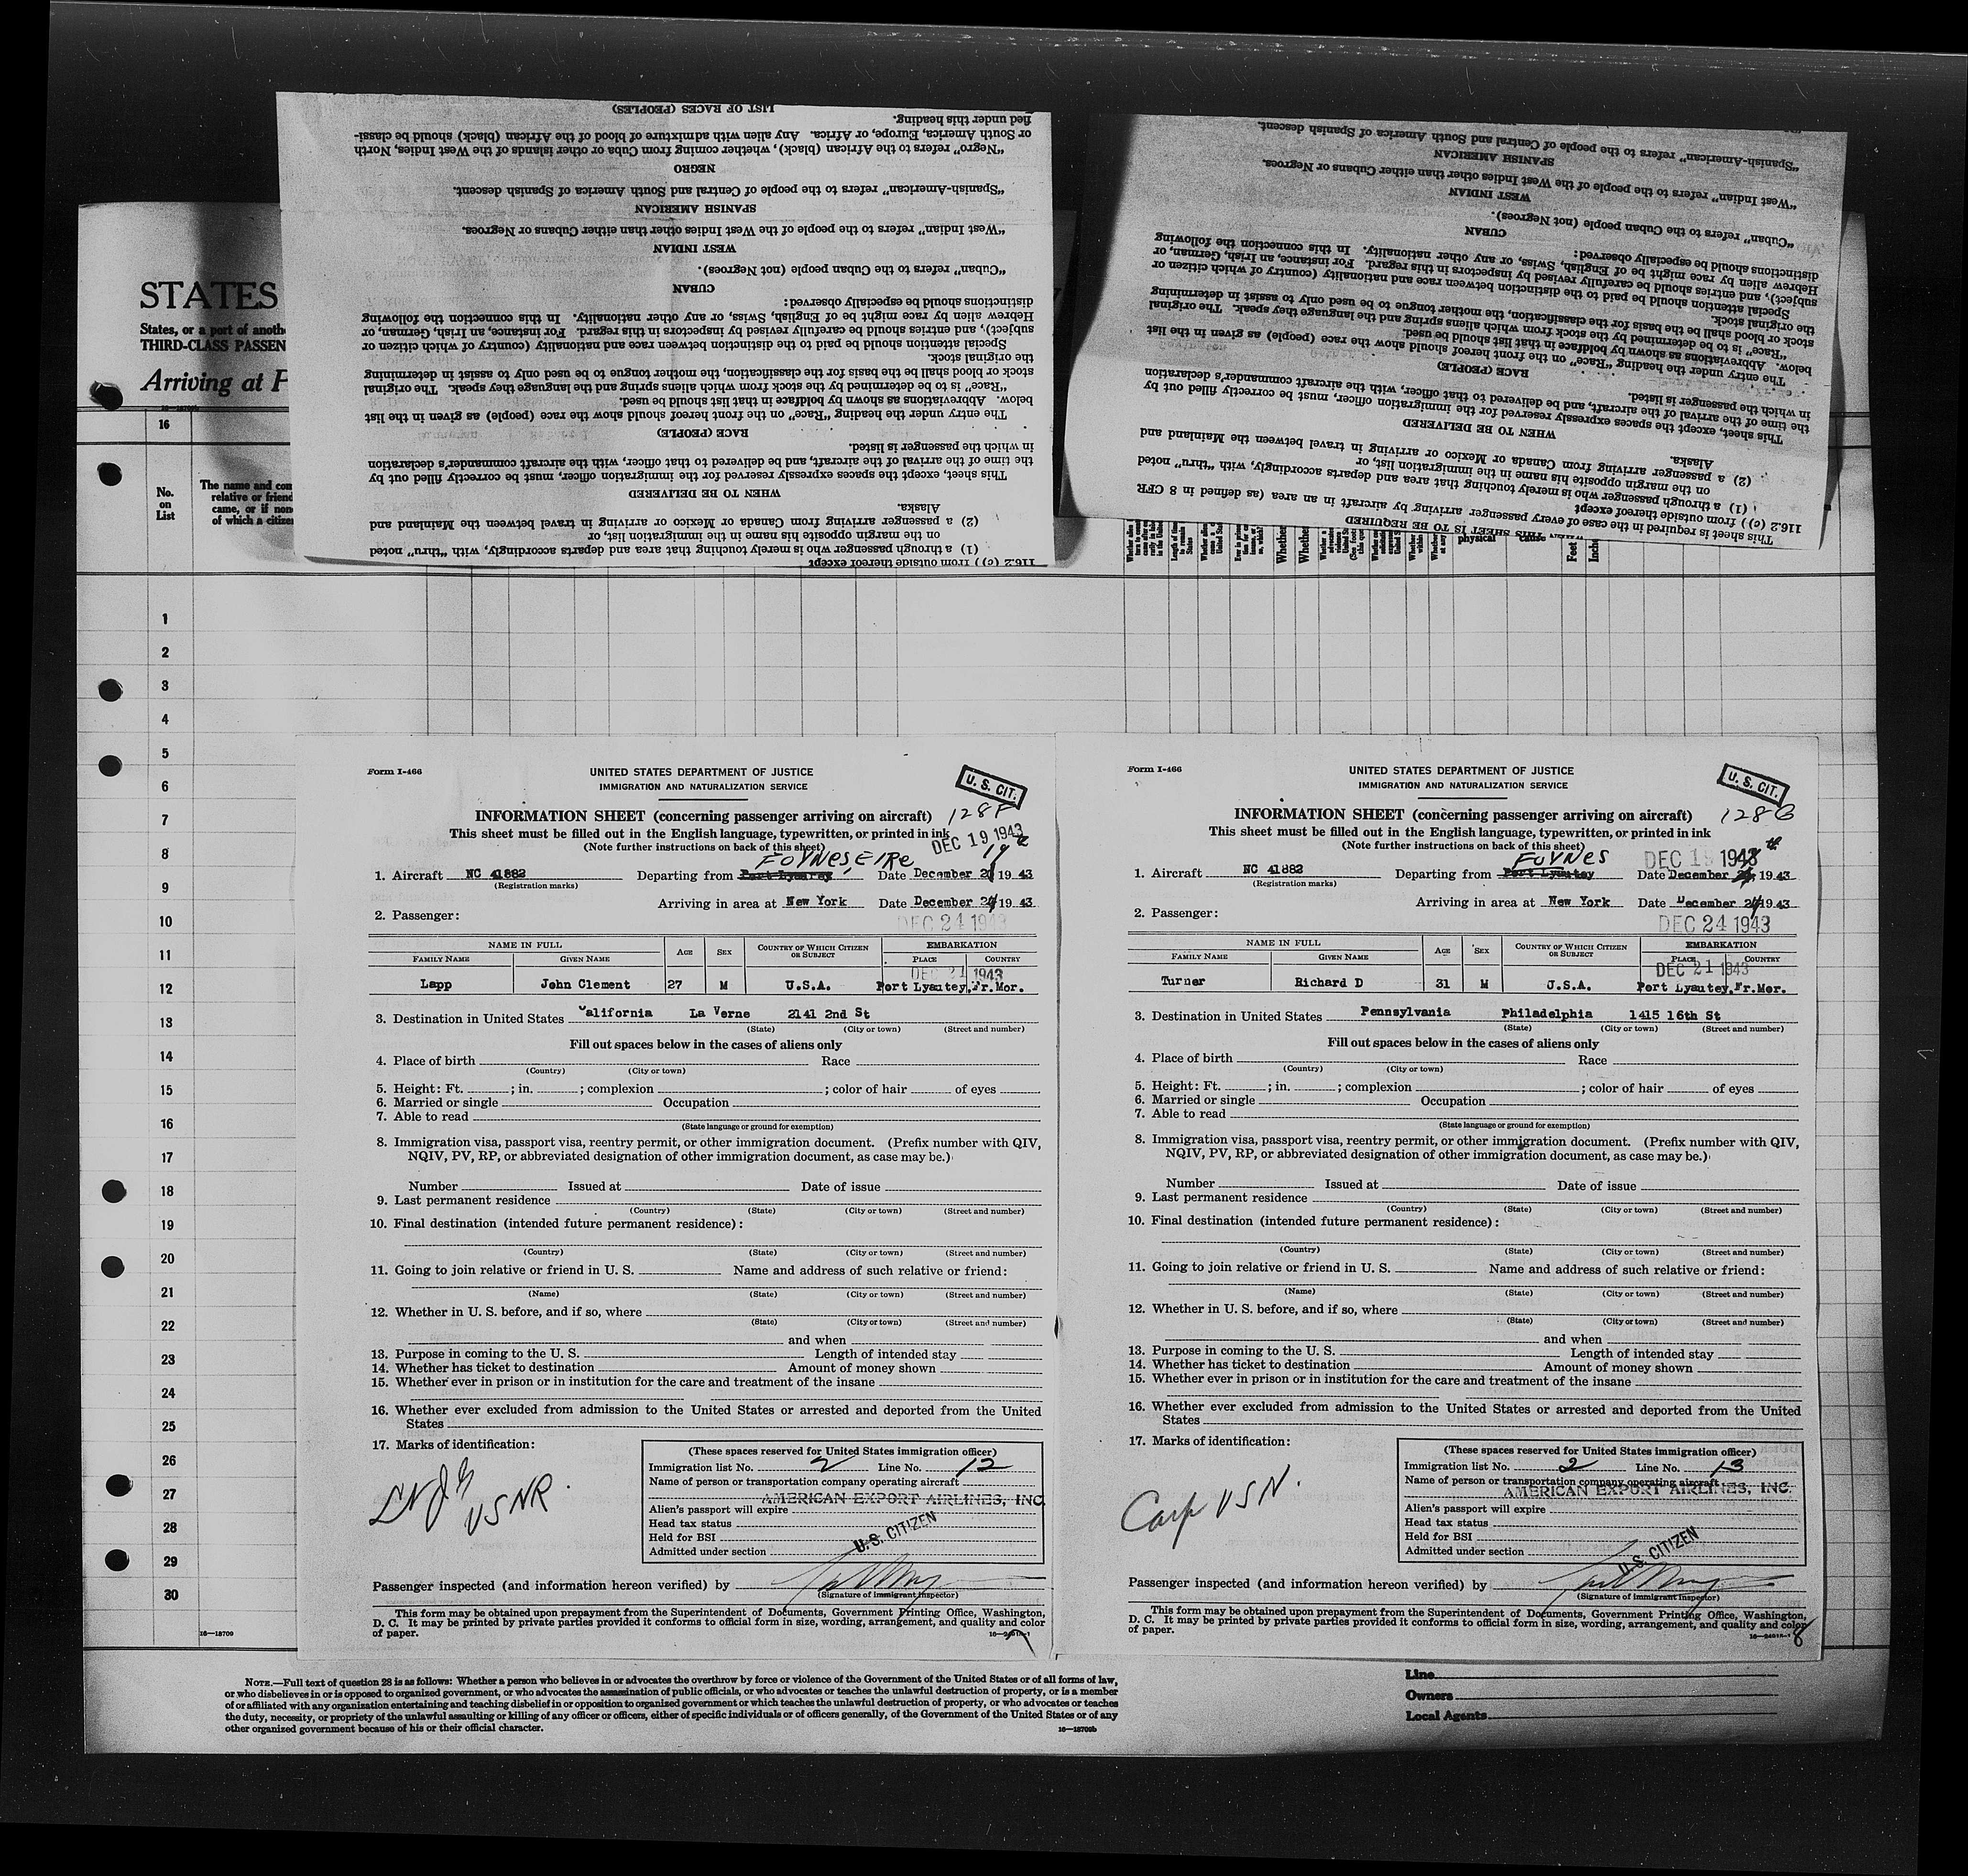 LIST OF RACES (PEOPLES)
fied under this heading.
or South America, Europe, or Africa. Any alien with admixture of blood of the African (black) should be classi-
"Negro" refers to the African (black), whether coming from Cuba or other islands of the West Indies, North
NEGRO
"Spanish-American" refers to the people of Central and South America of Spanish descent.
SPANISH AMERICAN
"West Indian" refers to the people of the West Indies other than either Cubans or Negroes.
WEST INDIAN
"Cuban" refers to the Cuban people (not Negroes).
CUBAN
distinctions should be especially observed:
Hebrew alien by race might be of English, Swiss, or any other nationality. In this connection the following
subject), and entries should be carefully revised by inspectors in this regard. For instance, an Irish, German, or
Special attention should be paid to the distinction between race and nationality (country of which citizen or
the original stock.
stock or blood shall be the basis for the classification, the mother tongue to be used only to assist in determining
"Race" is to be determined by the stock from which aliens spring and the language they speak. The original
below. Abbreviations as shown by boldface in that list should be used.
The entry under the heading "Race" on the front hereof should show the race (people) as given in the list
RACE (PEOPLE)
in which the passenger is listed.
the time of the arrival of the aircraft, and be delivered to that officer, with the aircraft commander's declaration
This sheet, except the spaces expressly reserved for the immigration officer, must be correctly filled out by
WHEN TO BE DELIVERED
Alaska.
(2) a passenger arriving from Canada or Mexico or arriving in travel between the Mainland and
on the margin opposite his name in the immigration list, or
(1) a through passenger who is merely touching that area and departs accordingly, with "thru" noted
116.2 (c)) from outside thereof except
"Spanish-American" refers to the people of Central and South America of Spanish descent.
SPANISH AMERICAN
"West Indian" refers to the people of the West Indies other than either Cubans or Negroes.
WEST INDIAN
"Cuban" refers to the Cuban people (not Negroes).
CUBAN
distinctions should be especially observed:
Hebrew alien by race might be of English, Swiss, or any other nationality. In this connection the following
subject), and entries should be carefully revised by inspectors in this regard. For instance, an Irish, German, or
Special attention should be paid to the distinction between race and nationality (country of which citizen or
the original stock.
stock or blood shall be the basis for the classification, the mother tongue to be used only to assist in determining
"Race" is to be determined by the stock from which aliens spring and the language they speak. The original
below. Abbreviations as shown by boldface in that list should be used.
The entry under the heading "Race" on the front hereof should show the race (people) as given in the list
RACE (PEOPLE)
in which the passenger is listed.
the time of the arrival of the aircraft, and be delivered to that officer, with the aircraft commander's declaration
This sheet, except the spaces expressly reserved for the immigration officer, must be correctly filled out by
WHEN TO BE DELIVERED
Alaska.
(2) a passenger arriving from Canada or Mexico or arriving in travel between the Mainland and
on the margin opposite his name in the immigration list, or
(1) a through passenger who is merely touching that area and departs accordingly, with "thru" noted
116.2 (c)) from outside thereof except
This sheet is required in the case of every passenger arriving by aircraft in an area (as defined in 8 CFR
THIS SHEET IS TO BE REQUIRED
STATES
States, or a port of anoth
THIRD-CLASS PASSEN
Arriving at P
16
No. on List
The name and com
relative or friend
came, or if non
of which a citize
Whether
Whether
physical
cause
Feet
Inche
1
2
3
4
5
6
7
8
9
10
11
12
13
14
15
16
17
18
19
20
21
22
23
24
25
26
27
28
29
30
16—18709
Form I-466
UNITED STATES DEPARTMENT OF JUSTICE
IMMIGRATION AND NATURALIZATION SERVICE
U. S. CIT.
128F
INFORMATION SHEET (concerning passenger arriving on aircraft)
This sheet must be filled out in the English language, typewritten, or printed in ink
(Note further instructions on back of this sheet)
DEC 19 1943
FOYNES, EIRE
1. Aircraft NC 41882 Departing from Port Lyautey Date December 19 43
(Registration marks)
Arriving in area at New York Date December 24 19 43
DEC 24 1943
2. Passenger:
NAME IN FULL AGE SEX COUNTRY OF WHICH CITIZEN OR SUBJECT EMBARKATION
FAMILY NAME GIVEN NAME PLACE COUNTRY
DEC 21 1943
Lapp John Clement 27 M U.S.A. Port Lyautey, Fr.Mor.
3. Destination in United States California La Verne 2141 2nd St
(State) (City or town) (Street and number)
Fill out spaces below in the cases of aliens only
4. Place of birth Race
(Country) (City or town)
5. Height: Ft. ; in. ; complexion ; color of hair of eyes
6. Married or single Occupation
7. Able to read
(State language or ground for exemption)
8. Immigration visa, passport visa, reentry permit, or other immigration document. (Prefix number with QIV,
NQIV, PV, RP, or abbreviated designation of other immigration document, as case may be.)
Number Issued at Date of issue
9. Last permanent residence
(Country) (State) (City or town) (Street and number)
10. Final destination (intended future permanent residence):
(Country) (State) (City or town) (Street and number)
11. Going to join relative or friend in U. S. Name and address of such relative or friend:
(Name) (State) (City or town) (Street and number)
12. Whether in U. S. before, and if so, where
(State) (City or town) (Street and number)
and when
13. Purpose in coming to the U. S. Length of intended stay
14. Whether has ticket to destination Amount of money shown
15. Whether ever in prison or in institution for the care and treatment of the insane
16. Whether ever excluded from admission to the United States or arrested and deported from the United
States
17. Marks of identification:
USNR
(These spaces reserved for United States immigration officer)
Immigration list No. 2 Line No. 12
Name of person or transportation company operating aircraft
AMERICAN EXPORT AIRLINES, INC.
Alien's passport will expire
Head tax status
Held for BSI
Admitted under section
U. S. CITIZEN
Passenger inspected (and information hereon verified) by
(Signature of immigrant inspector)
This form may be obtained upon prepayment from the Superintendent of Documents, Government Printing Office, Washington,
D. C. It may be printed by private parties provided it conforms to official form in size, wording, arrangement, and quality and color
of paper.
7
Form I-466
UNITED STATES DEPARTMENT OF JUSTICE
IMMIGRATION AND NATURALIZATION SERVICE
U. S. CIT.
128G
INFORMATION SHEET (concerning passenger arriving on aircraft)
This sheet must be filled out in the English language, typewritten, or printed in ink
(Note further instructions on back of this sheet)
FOYNES
DEC 19 1943
1. Aircraft NC 41882 Departing from Port Lyautey Date December 19 43
(Registration marks)
Arriving in area at New York Date December 24 19 43
DEC 24 1943
2. Passenger:
NAME IN FULL AGE SEX COUNTRY OF WHICH CITIZEN OR SUBJECT EMBARKATION
FAMILY NAME GIVEN NAME PLACE COUNTRY
DEC 21 1943
Turner Richard D 31 M U.S.A. Port Lyautey, Fr.Mor.
3. Destination in United States Pennsylvania Philadelphia 1415 16th St
(State) (City or town) (Street and number)
Fill out spaces below in the cases of aliens only
4. Place of birth Race
(Country) (City or town)
5. Height: Ft. ; in. ; complexion ; color of hair of eyes
6. Married or single Occupation
7. Able to read
(State language or ground for exemption)
8. Immigration visa, passport visa, reentry permit, or other immigration document. (Prefix number with QIV,
NQIV, PV, RP, or abbreviated designation of other immigration document, as case may be.)
Number Issued at Date of issue
9. Last permanent residence
(Country) (State) (City or town) (Street and number)
10. Final destination (intended future permanent residence):
(Country) (State) (City or town) (Street and number)
11. Going to join relative or friend in U. S. Name and address of such relative or friend:
(Name) (State) (City or town) (Street and number)
12. Whether in U. S. before, and if so, where
(State) (City or town) (Street and number)
and when
13. Purpose in coming to the U. S. Length of intended stay
14. Whether has ticket to destination Amount of money shown
15. Whether ever in prison or in institution for the care and treatment of the insane
16. Whether ever excluded from admission to the United States or arrested and deported from the United
States
17. Marks of identification:
Carp USN.
(These spaces reserved for United States immigration officer)
Immigration list No. 2 Line No. 13
Name of person or transportation company operating aircraft
AMERICAN EXPORT AIRLINES, INC.
Alien's passport will expire
Head tax status
Held for BSI
Admitted under section
U. S. CITIZEN
Passenger inspected (and information hereon verified) by
(Signature of immigrant inspector)
This form may be obtained upon prepayment from the Superintendent of Documents, Government Printing Office, Washington,
D. C. It may be printed by private parties provided it conforms to official form in size, wording, arrangement, and quality and color
of paper.
8
NOTE.—Full text of question 28 is as follows: Whether a person who believes in or advocates the overthrow by force or violence of the Government of the United States or of all forms of law,
or who disbelieves in or is opposed to organized government, or who advocates the assassination of public officials, or who advocates or teaches the unlawful destruction of property, or is a member
of or affiliated with any organization entertaining and teaching disbelief in or opposition to organized government or which teaches the unlawful destruction of property, or who advocates or teaches
the duty, necessity, or propriety of the unlawful assaulting or killing of any officer or officers, either of specific individuals or of officers generally, of the Government of the United States or of any
other organized government because of his or their official character.
16—18709b
Line
Owners
Local Agents